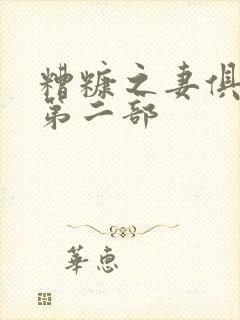 糟糠之妻俱
第二部
華惠